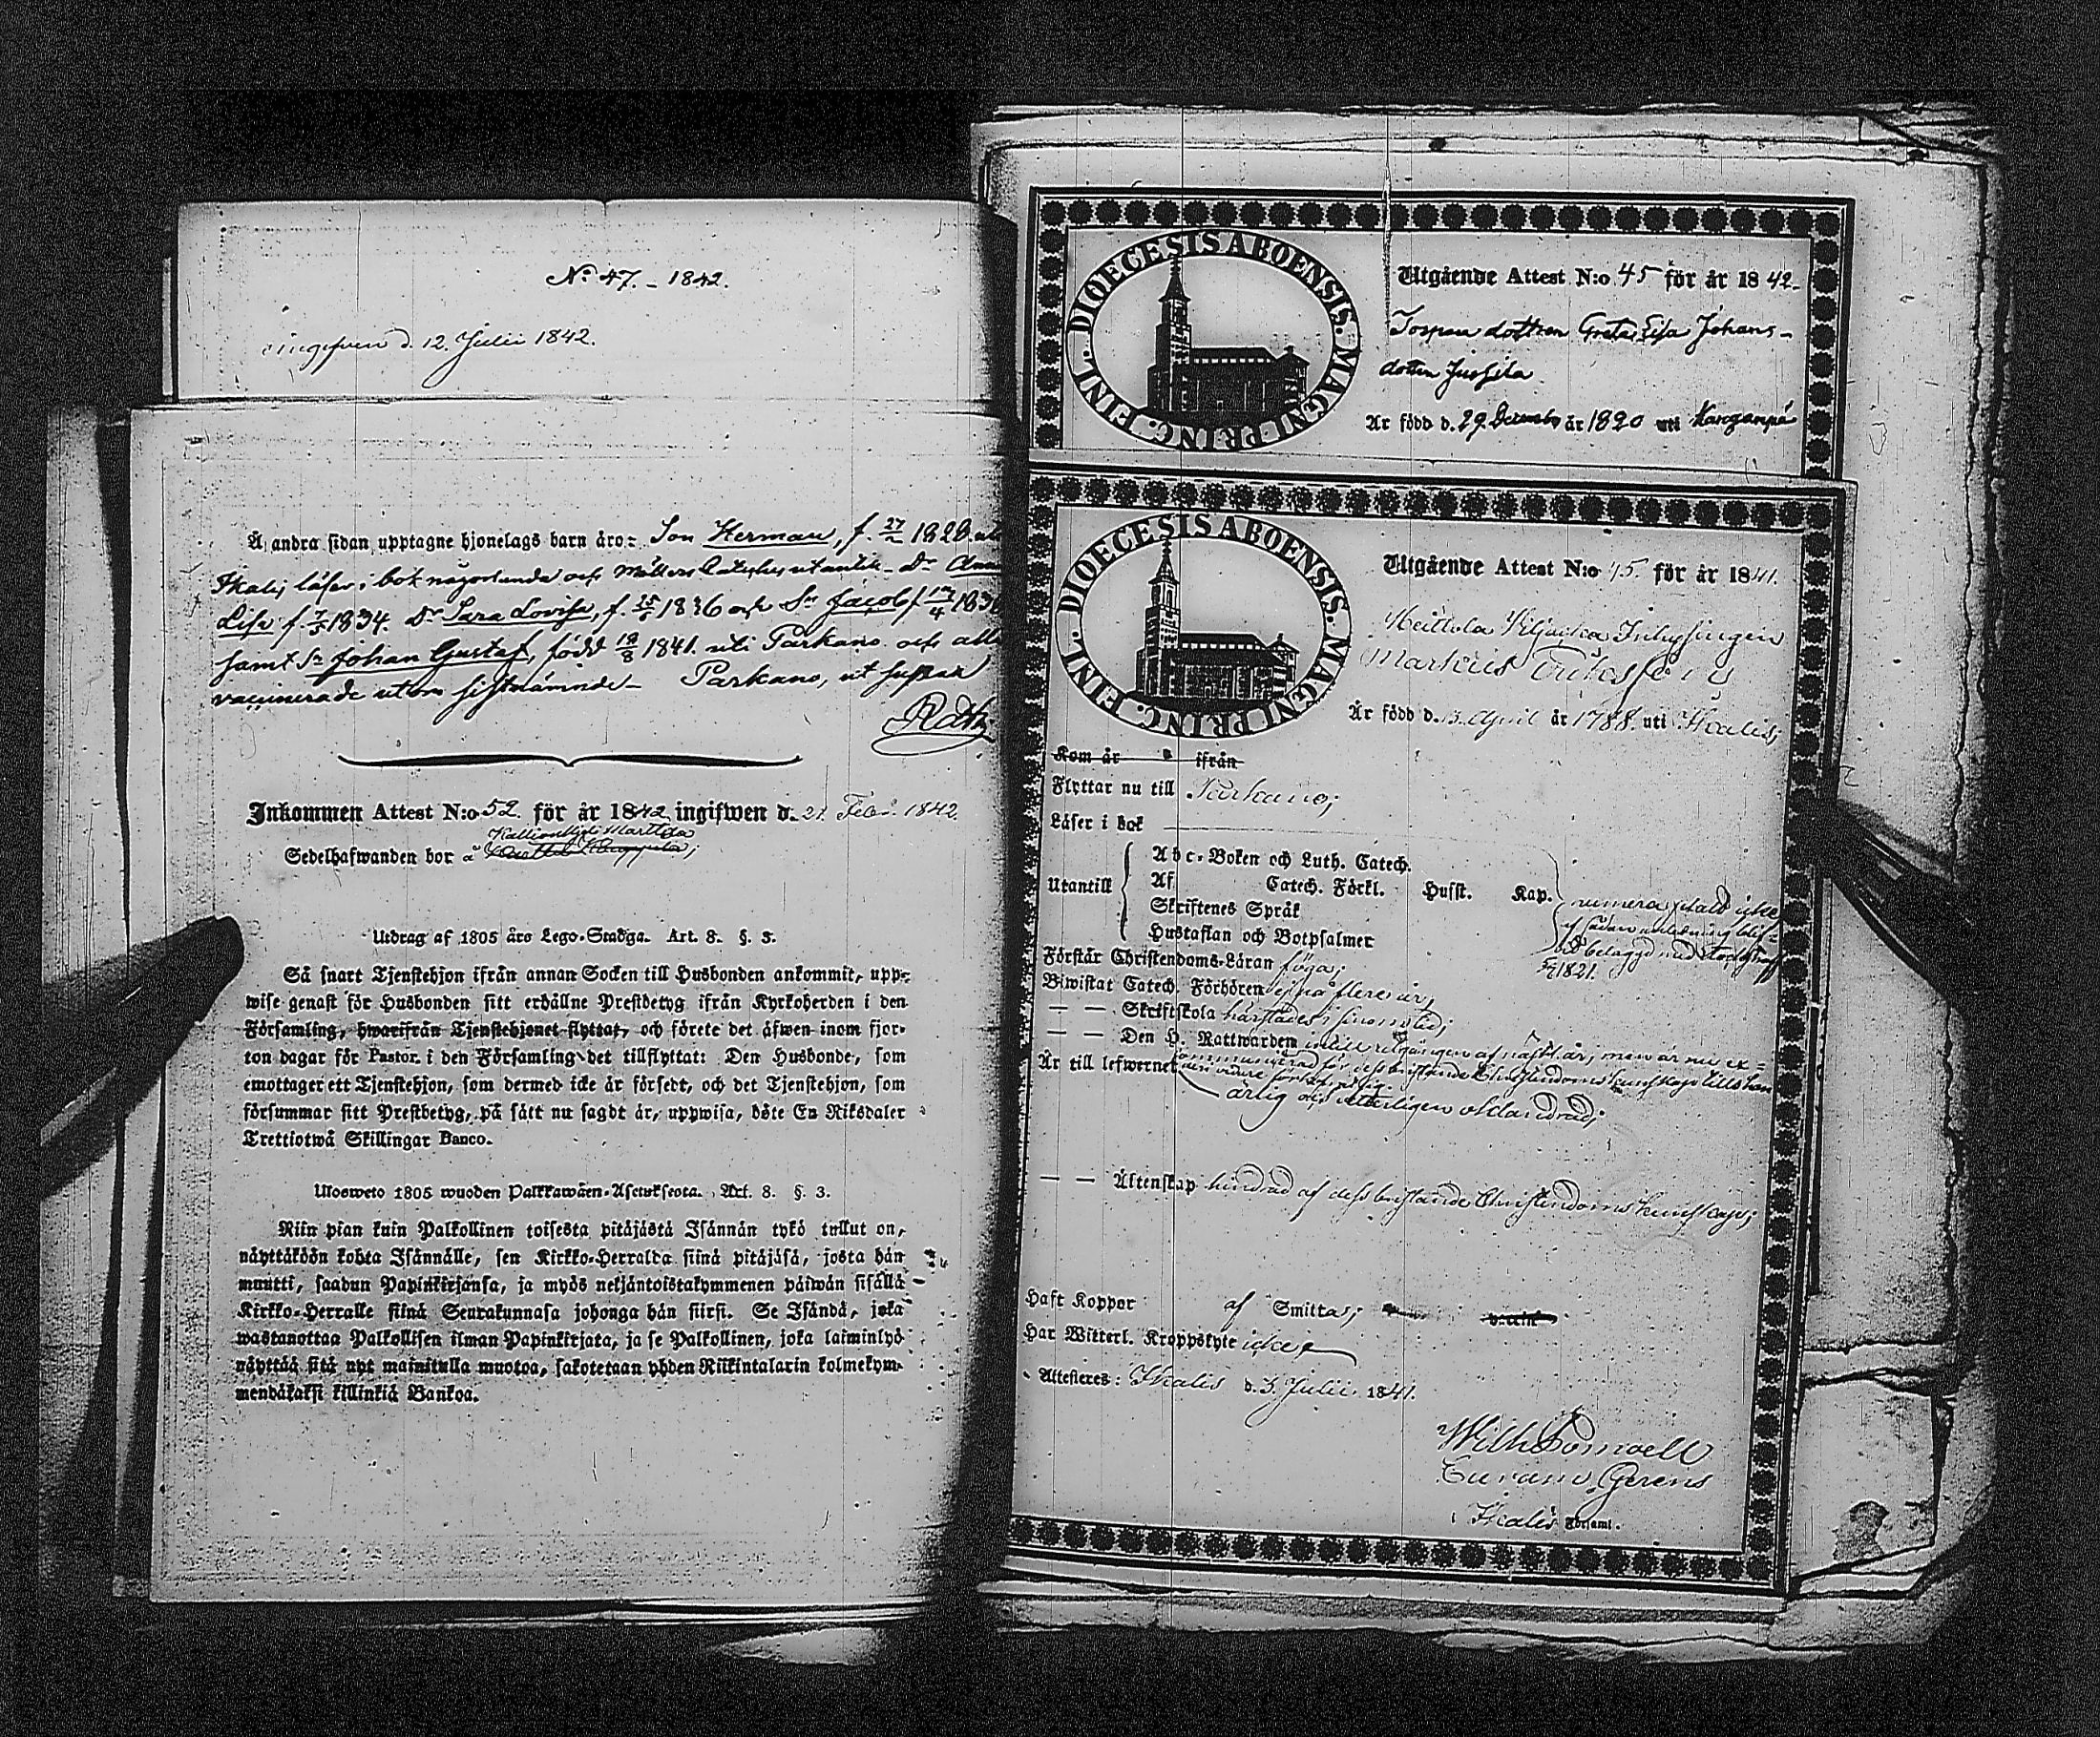 No 47. - 1842.
d. 12. Julii 1842.
Å andra sidan upptagne hjonelags barn äro: Son Herman, f. 27/2 1828
Ikalis läser i bok någorlunda och utantill - Dr Anna
Lisa f. 7/5 1834. Dr Sara Lovisa, f. 1836 och Sn Jacob f. 17/4 183
samt Sn Johan Gustaf, född 19/8 1841. uti Parkano och alla
vaccinerade utom sistnämnde - Parkano, ut supra
Inkommen Attest N:o 52. för år 1842 ingifwen d. 21. Febr. 1842.
Marttila
Sedelhafwanden bor å
Utdrag af 1805 års Lego-Stadga. Art. 8. §. 3.
Så snart Tjenstehjon ifrån annan Socken till Husbonden ankommit, upp-
wise genast för Husbonden sitt erhållne Prestbetyg ifrån Kyrkoherden i den
Församling, hwarifrån Tjenstehjonet flyttat, och förete det äfwen inom fjor-
ton dagar för Pastor. i den Församling det tillflyttat: Den Husbonde, som
emottager ett Tjenstehjon, som dermed icke är försedt, och det Tjenstehjon, som
försummar sitt Prestbetyg, på sätt nu sagdt är, uppwisa, böte En Riksdaler
Trettiotwå Skillingar Banco.
Ulosweto 1805 wuoden Palkkawäen-Asetuksesta. Art. 8. §. 3.
Niin pian kuin Palkollinen toisesta pitäjästä Isännän tykö tullut on,
näyttäköön kohta Isännälle, sen Kirkko-Herralda siinä pitäjäsä, josta hän
muutti, saadun Papinkirjansa, ja myös neljäntoistakymmenen päiwän sisällä
Kirkko-Herralle siinä Seurakunnasa johonga hän siirsi. Se Isändä, joka
wastanottaa Palkollisen ilman Papinkirjata, ja se Palkollinen, joka laiminlyö
näyttää sitä nyt mainitulla muotoa, sakotetaan yhden Riikintalarin kolmekym-
mendäkaksi killinkiä Bankoa.
DIOECESIS ABOENSIS. MAGNI PRINC. FINL.
Utgående Attest N:o 45 för år 1842.
dottren Greta Lisa Johans-
dotter Jussila
Är född d. 29 December år 1820 uti Kangampä
DIOECESIS ABOENSIS. MAGNI PRINC. FINL.
Utgående Attest N:o 45. för år 1841.
Inhysingen
Markus Eriksson
Är född d. 13. April år 1788. uti Ikalis;
Kom år ifrån
Flyttar nu till Parkano;
Läser i bok
Utantill
Abc-Boken och Luth. Catech.
Af Catech. Förkl. Husst. Kap.
Skriftenes Språk
Hustaflan och Botpsalmer
numera icke
af sådan anledning blif-
belagd med
1821.
Förstår Christendoms-Läran föga;
Biwistat Catech. Förhören ej på flere år;
— — Skriftskola härstädes i sinom tid;
— — Den H. Nattwarden intill utgången af år, men är nu ex-
communicerad för dess bristande Christendoms kunskap
Är till lefwernet
ärlig och oklandrad;
— — Äktenskap hindrad af dess bristande Christendoms kunskap;
Haft Koppor af Smitta;
Har Witterl. Kroppslyte icke
Attesteres: Ikalis d. 3. Julii 1841.
Wilh.
Curam Gerens
i Ikalis Församl.